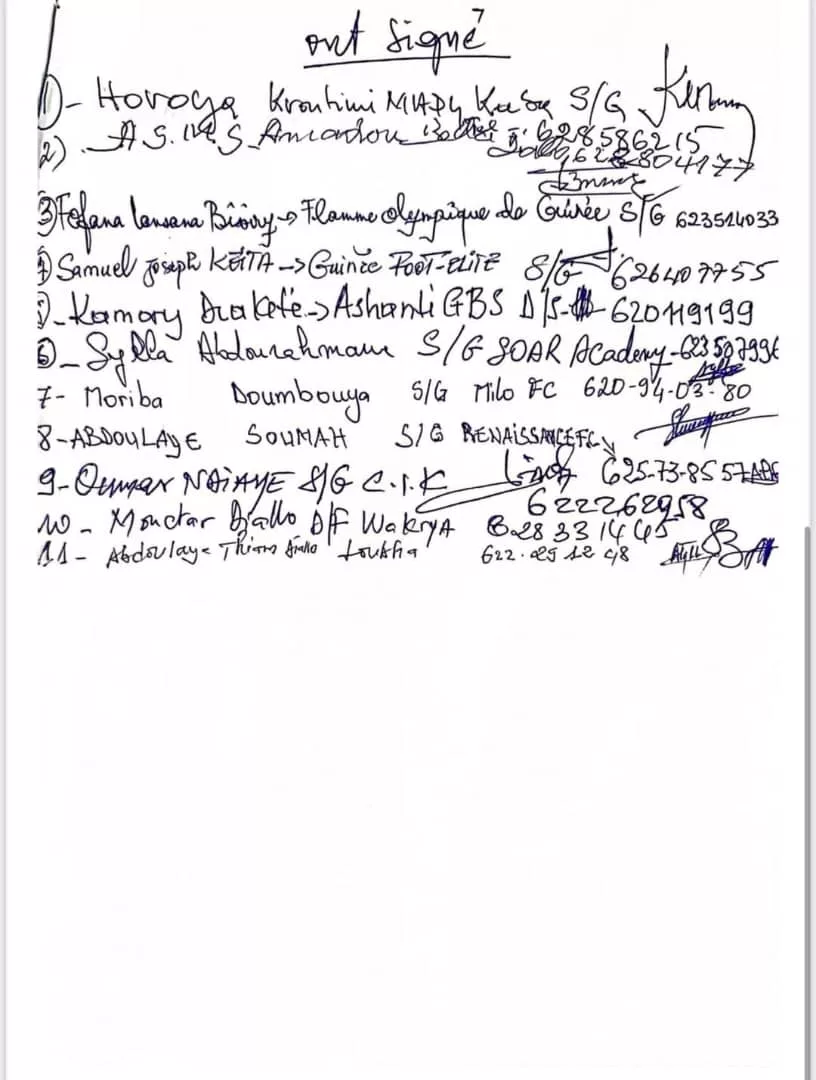 ont signé
1)- Horoya Kroutimi MIADY S/G
2) A S. Amadou 628586215
628804177
3) Fofana Lansana → Flamme Olympique de Guinée S/G 623514033
4) Samuel Joseph KEITA → Guinée FOOT-ELITE S/G 626407755
5)- Kamory Diakité → Ashanti GBS D/S- 620119199
6)- Sylla Abdourahmane S/G SOAR Academy - 623507996
7- Moriba Doumbouya S/G Milo FC 620-94-03-80
8- ABDOULAYE SOUMAH S/G RENAISSANCE FC
9- Oumar NDIAYE S/G C.I.K 625-73-85 57
622262958
10 - Mouctar Djallo D/F WakryA 628 33 14 45
11 - Abdoulaye Thiam Diallo Loukha 622.25 12 48